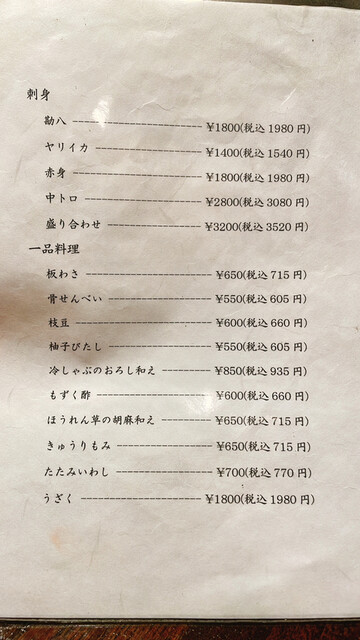 刺身
勘八 ---------------------- ¥1800(税込1980円)
ヤリイカ ------------------ ¥1400(税込1540円)
赤身 ---------------------- ¥1800(税込1980円)
中トロ -------------------- ¥2800(税込3080円)
盛り合わせ ---------------- ¥3200(税込3520円)
一品料理
板わさ -------------------- ¥650(税込715円)
骨せんべい ---------------- ¥550(税込605円)
枝豆 ---------------------- ¥600(税込660円)
柚子びたし ---------------- ¥550(税込605円)
冷しゃぶのおろし和え ------ ¥850(税込935円)
もずく酢 ------------------ ¥600(税込660円)
ほうれん草の胡麻和え ------ ¥650(税込715円)
きゅうりもみ -------------- ¥650(税込715円)
たたみいわし -------------- ¥700(税込770円)
うざく -------------------- ¥1800(税込1980円)